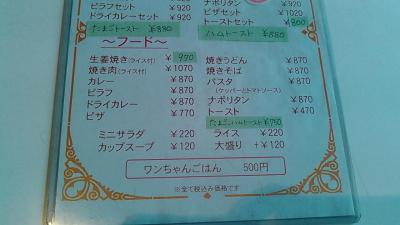 ピラフセット ¥920
ドライカレーセット ¥920
たまごトースト ¥880
ナポリタン ¥920
ピザセット ¥820
トーストセット ¥800
ハムトースト ¥880
～フード～
生姜焼き(ライス付) ¥970
焼き肉(ライス付) ¥1070
カレー ¥870
ピラフ ¥870
ドライカレー ¥870
ピザ ¥770
ミニサラダ ¥220
カップスープ ¥120
焼うどん ¥870
焼きそば ¥870
パスタ ¥870
(ケッパーとトマトソース)
ナポリタン ¥870
トースト ¥470
たまごハムトースト ¥750
ライス ¥220
大盛り +¥120
ワンちゃんごはん 500円
※全て税込み価格です